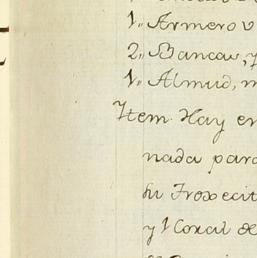 1,, Armero v
2,, Bancas, y
1,, Almud, m
Ytem Hay en
nada para
su Troxecit
y 1 Corral de